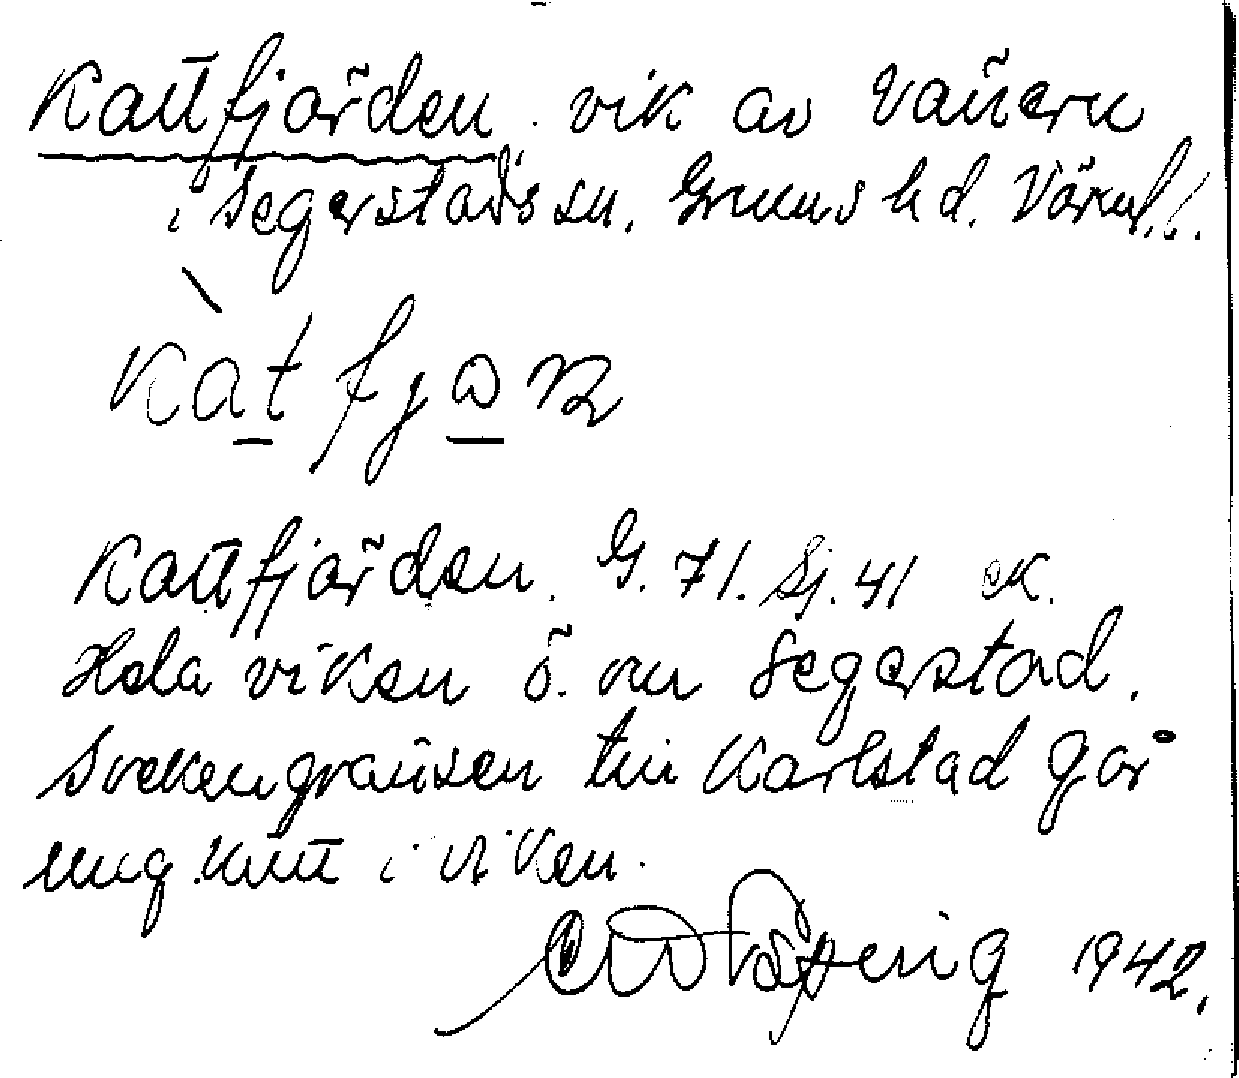 Kattfjärden vik av Vänern
i Segerstads sn. Grums hd. Värml.
Kattfjärden. G. 71. Sj. 41 ek.
Hela viken ö. om Segerstad.
Sockengränsen till Karlstad går
mitt i viken.
1942.